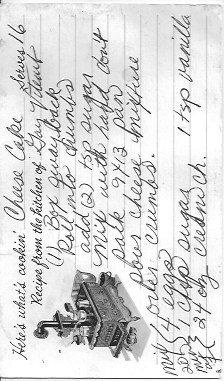 Here's what's cookin' Cheese Cake Serves 16
Recipe from the kitchen of Gay
(1) Box zwieback
Roll into crumbs
add (2) tsp sugar
mix with hand don't
pack 9x13 pan
Pour cheese mixture
over crumbs.
mix 4 eggs
1 cup sugar 1 tsp vanilla
3 24 oz cream ch.